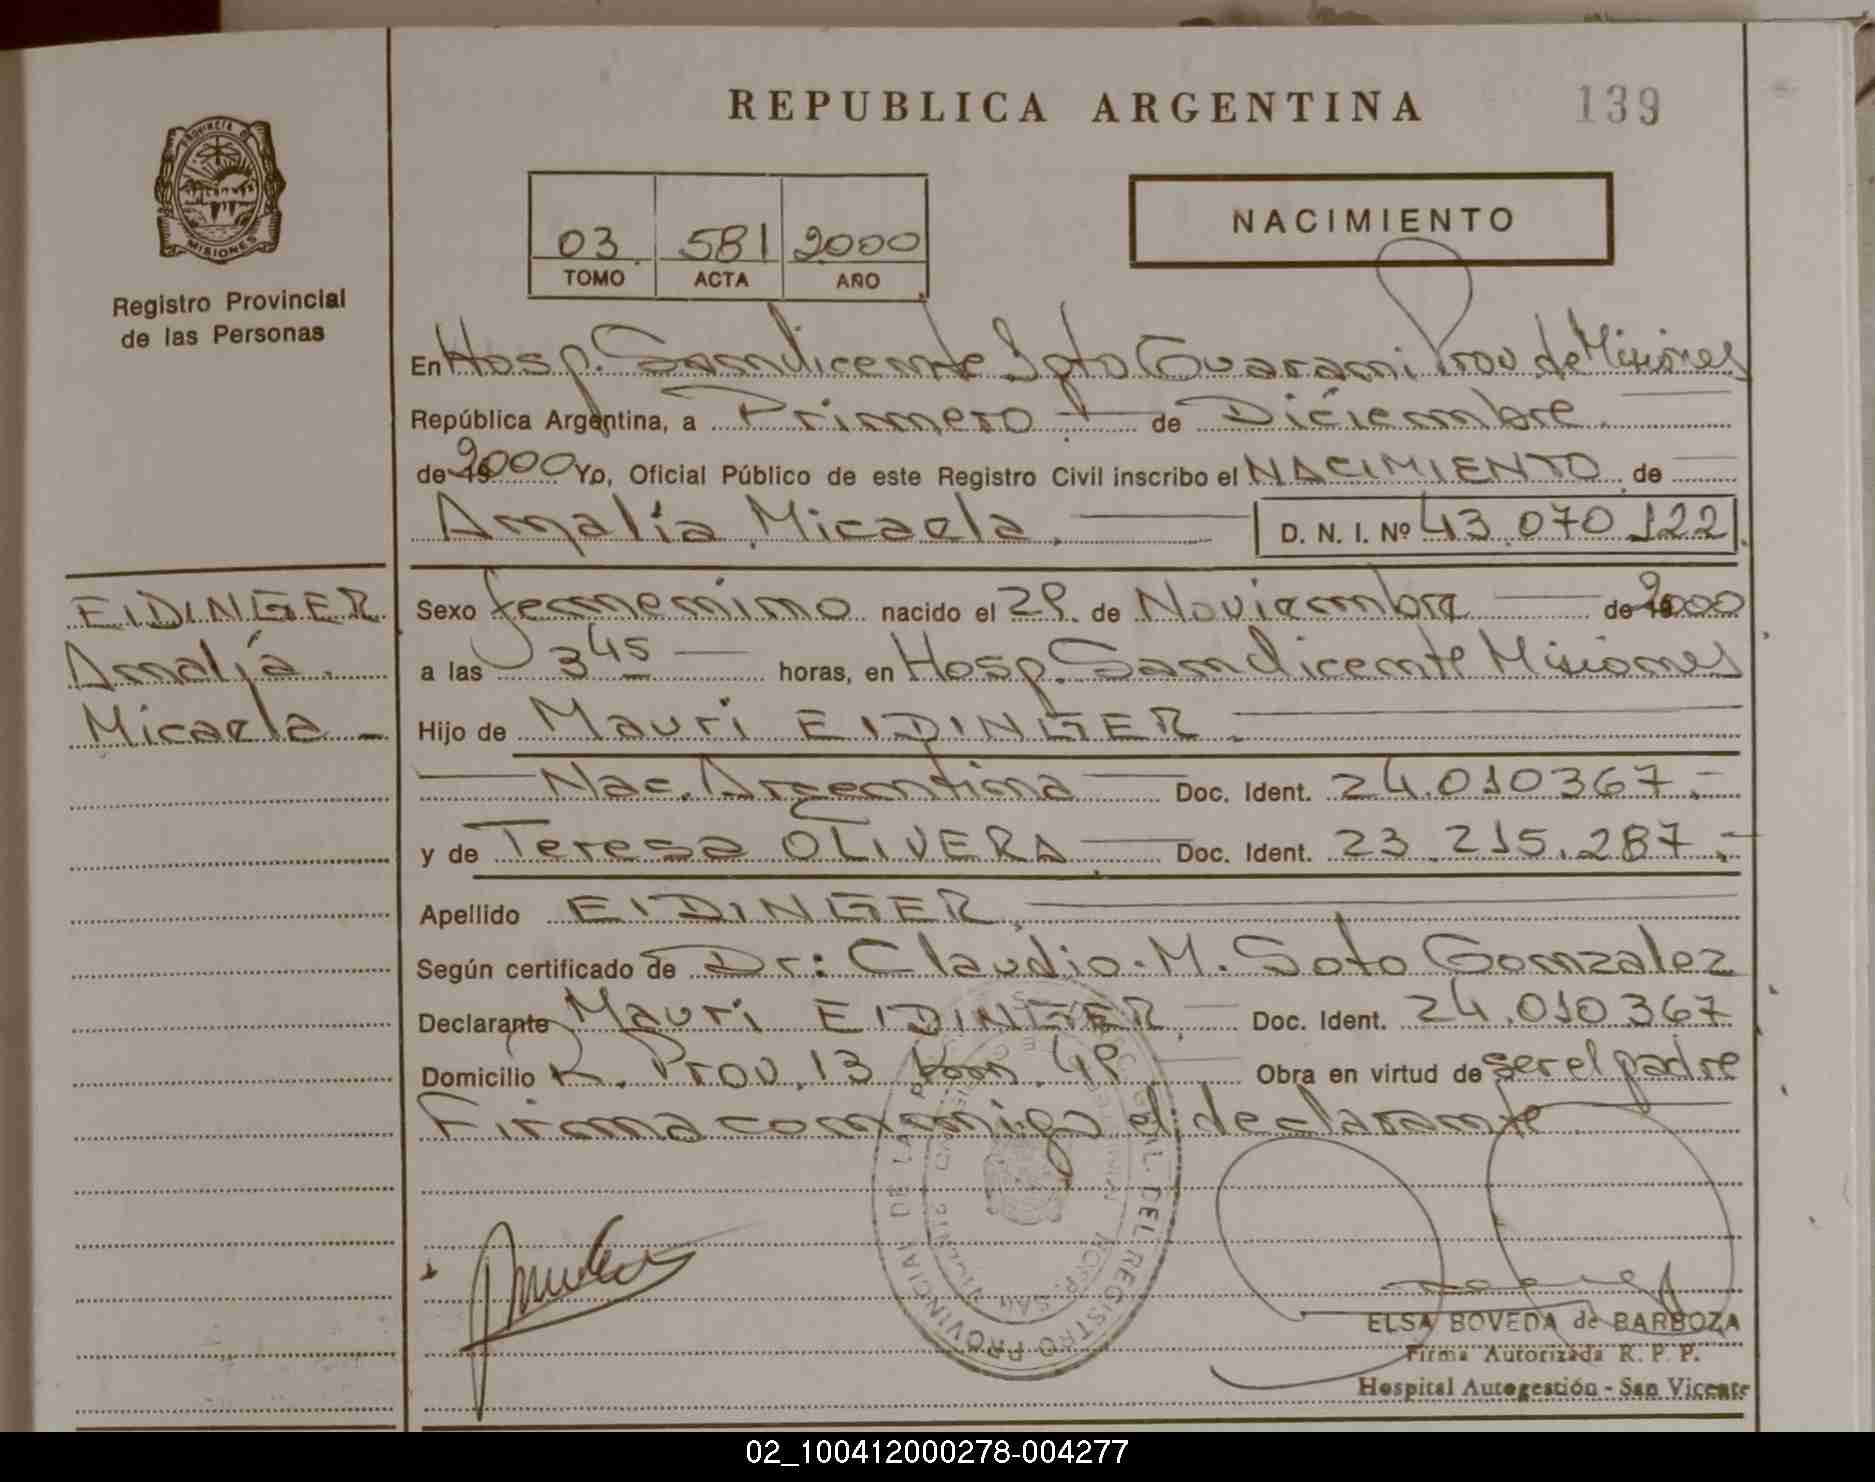 REPUBLICA ARGENTINA
139
PROVINCIA D
MISIONES
Registro Provincial
de las Personas
03 581 2000
TOMO ACTA AÑO
NACIMIENTO
En Hosp. San Vicente Dpto Guarani Prov. de Misiones
República Argentina, a Primero de Diciembre
de 19 2000 Yo, Oficial Público de este Registro Civil inscribo el NACIMIENTO de
Amalia Micaela. D. N. I. Nº 43.070.122
EIDINGER
Amalia
Micaela
Sexo femenino nacido el 29. de Noviembre de 19 2000
a las 3 45 horas, en Hosp. San Vicente Misiones
Hijo de Mauri EIDINGER.
Nac. Argentina Doc. Ident. 24.010367.-
y de Teresa OLIVERA Doc. Ident. 23.215.287.-
Apellido EIDINGER.
Según certificado de Dr: Claudio M. Soto Gonzalez
Declarante Mauri EIDINGER. Doc. Ident. 24.010.367
Domicilio R. Prov. 13 Km. 49 Obra en virtud de ser el padre
Firma conmigo el declarante
PROVINCIAL DE LA
DEL REGISTRO
HOSP. SAN VICENTE
ELSA BOVEDA de BARBOZA
Firma Autorizada R. P. P.
Hospital Autogestión - San Vicente
02_100412000278-004277